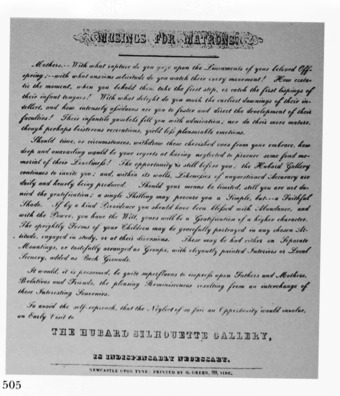 MUSINGS FOR MATRONS.
Mothers,—With what rapture do you gaze upon the Lineaments of your beloved Off-
spring;—with what anxious solicitude do you watch their every movement! How ecsta-
tic the moment, when you behold them take the first step, or catch the first lispings of
their infant tongues! With what delight do you mark the earliest dawnings of their in-
tellect, and how intensely assiduous are you to foster and direct the development of their
faculties! Their infantile gambols fill you with admiration; nor do their more mature,
though perhaps boisterous recreations, yield less pleasurable emotions.
Should time, or circumstances, withdraw these cherished ones from your embrace, how
deep and unavailing would be your regrets at having neglected to procure some fond me-
morial of their Loveliness! The opportunity is still before you; the Hubard Gallery
continues to invite you; and, within its walls, Likenesses of unquestioned Accuracy are
daily and hourly being produced. Should your means be limited, still you are not de-
nied the gratification; a single Shilling may procure you a Simple, but a Faithful
Shade. If by a kind Providence you should have been blessed with Abundance, and
with the Power, you have the Will, yours will be a Gratification of a higher character.
The sprightly Forms of your Children may be gracefully portrayed in any chosen At-
titude, engaged in study, or at their diversions. These may be had either on Separate
Mountings, or tastefully arranged as Groups, with elegantly painted Interiors or Local
Scenery, added as Back Grounds.
It would, it is presumed, be quite superfluous to impress upon Fathers and Mothers,
Relatives and Friends, the pleasing Reminiscences resulting from an interchange of
these Interesting Souvenirs.
To avoid the self-reproach, that the Neglect of so fair an Opportunity would involve,
an Early Visit to
THE HUBARD SILHOUETTE GALLERY,
IS INDISPENSABLY NECESSARY.
NEWCASTLE UPON TYNE: PRINTED BY SIDE.
505